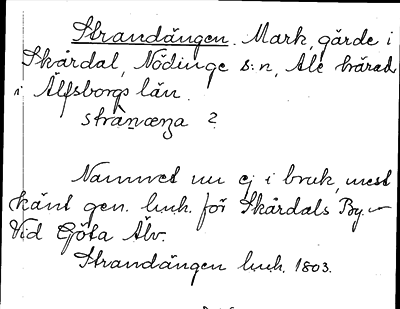 Strandängen. Mark, gärde i
Skårdal, Nödinge s:n, Ale härad
i Älfsborgs län.
?
Namnet nu ej i bruk, mest
känt gen. huh. för Skårdals By.
Vid Göta Älv.
Strandängen huh. 1803.